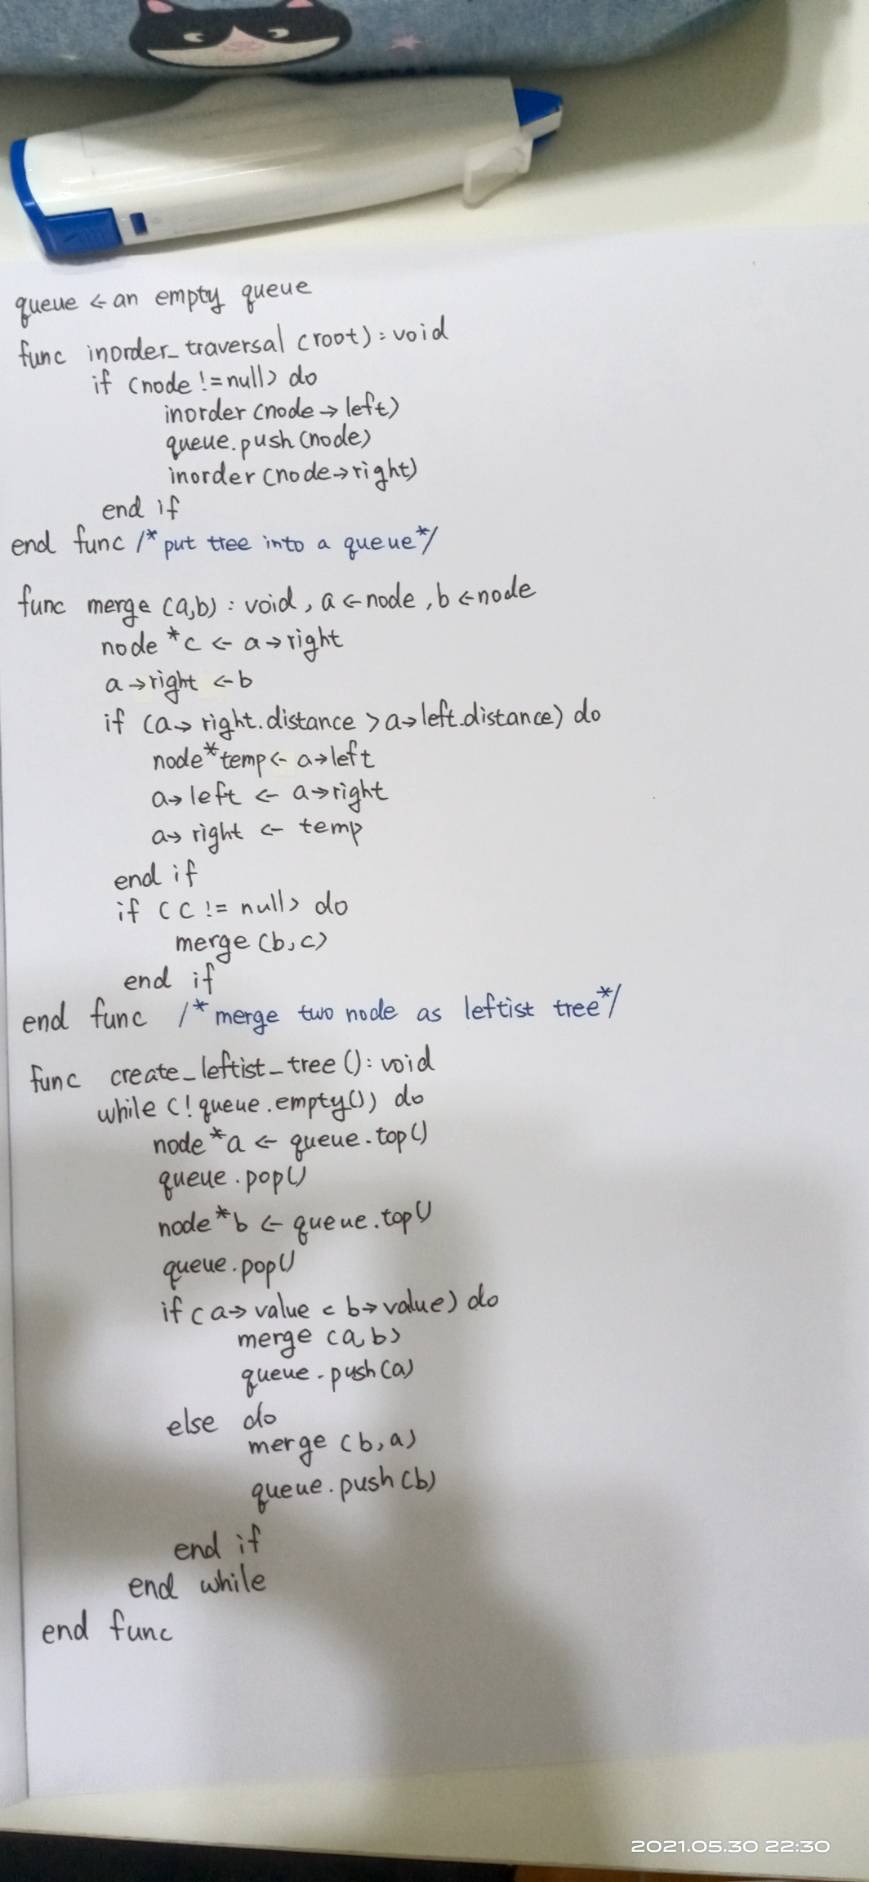 queue ← an empty queue
func inorder_traversal (root) : void
if (node != null) do
inorder (node → left)
queue.push (node)
inorder (node → right)
end if
end func /* put tree into a queue */
func merge (a,b) : void, a ← node, b ← node
node *c ← a → right
a → right ← b
if (a → right.distance > a → left.distance) do
node *temp ← a → left
a → left ← a → right
a → right ← temp
end if
if (c != null) do
merge (b,c)
end if
end func /* merge two node as leftist tree */
func create_leftist_tree () : void
while (! queue.empty()) do
node *a ← queue.top()
queue.pop()
node *b ← queue.top()
queue.pop()
if (a → value < b → value) do
merge (a,b)
queue.push (a)
else do
merge (b,a)
queue.push (b)
end if
end while
end func
2021.05.30 22:30